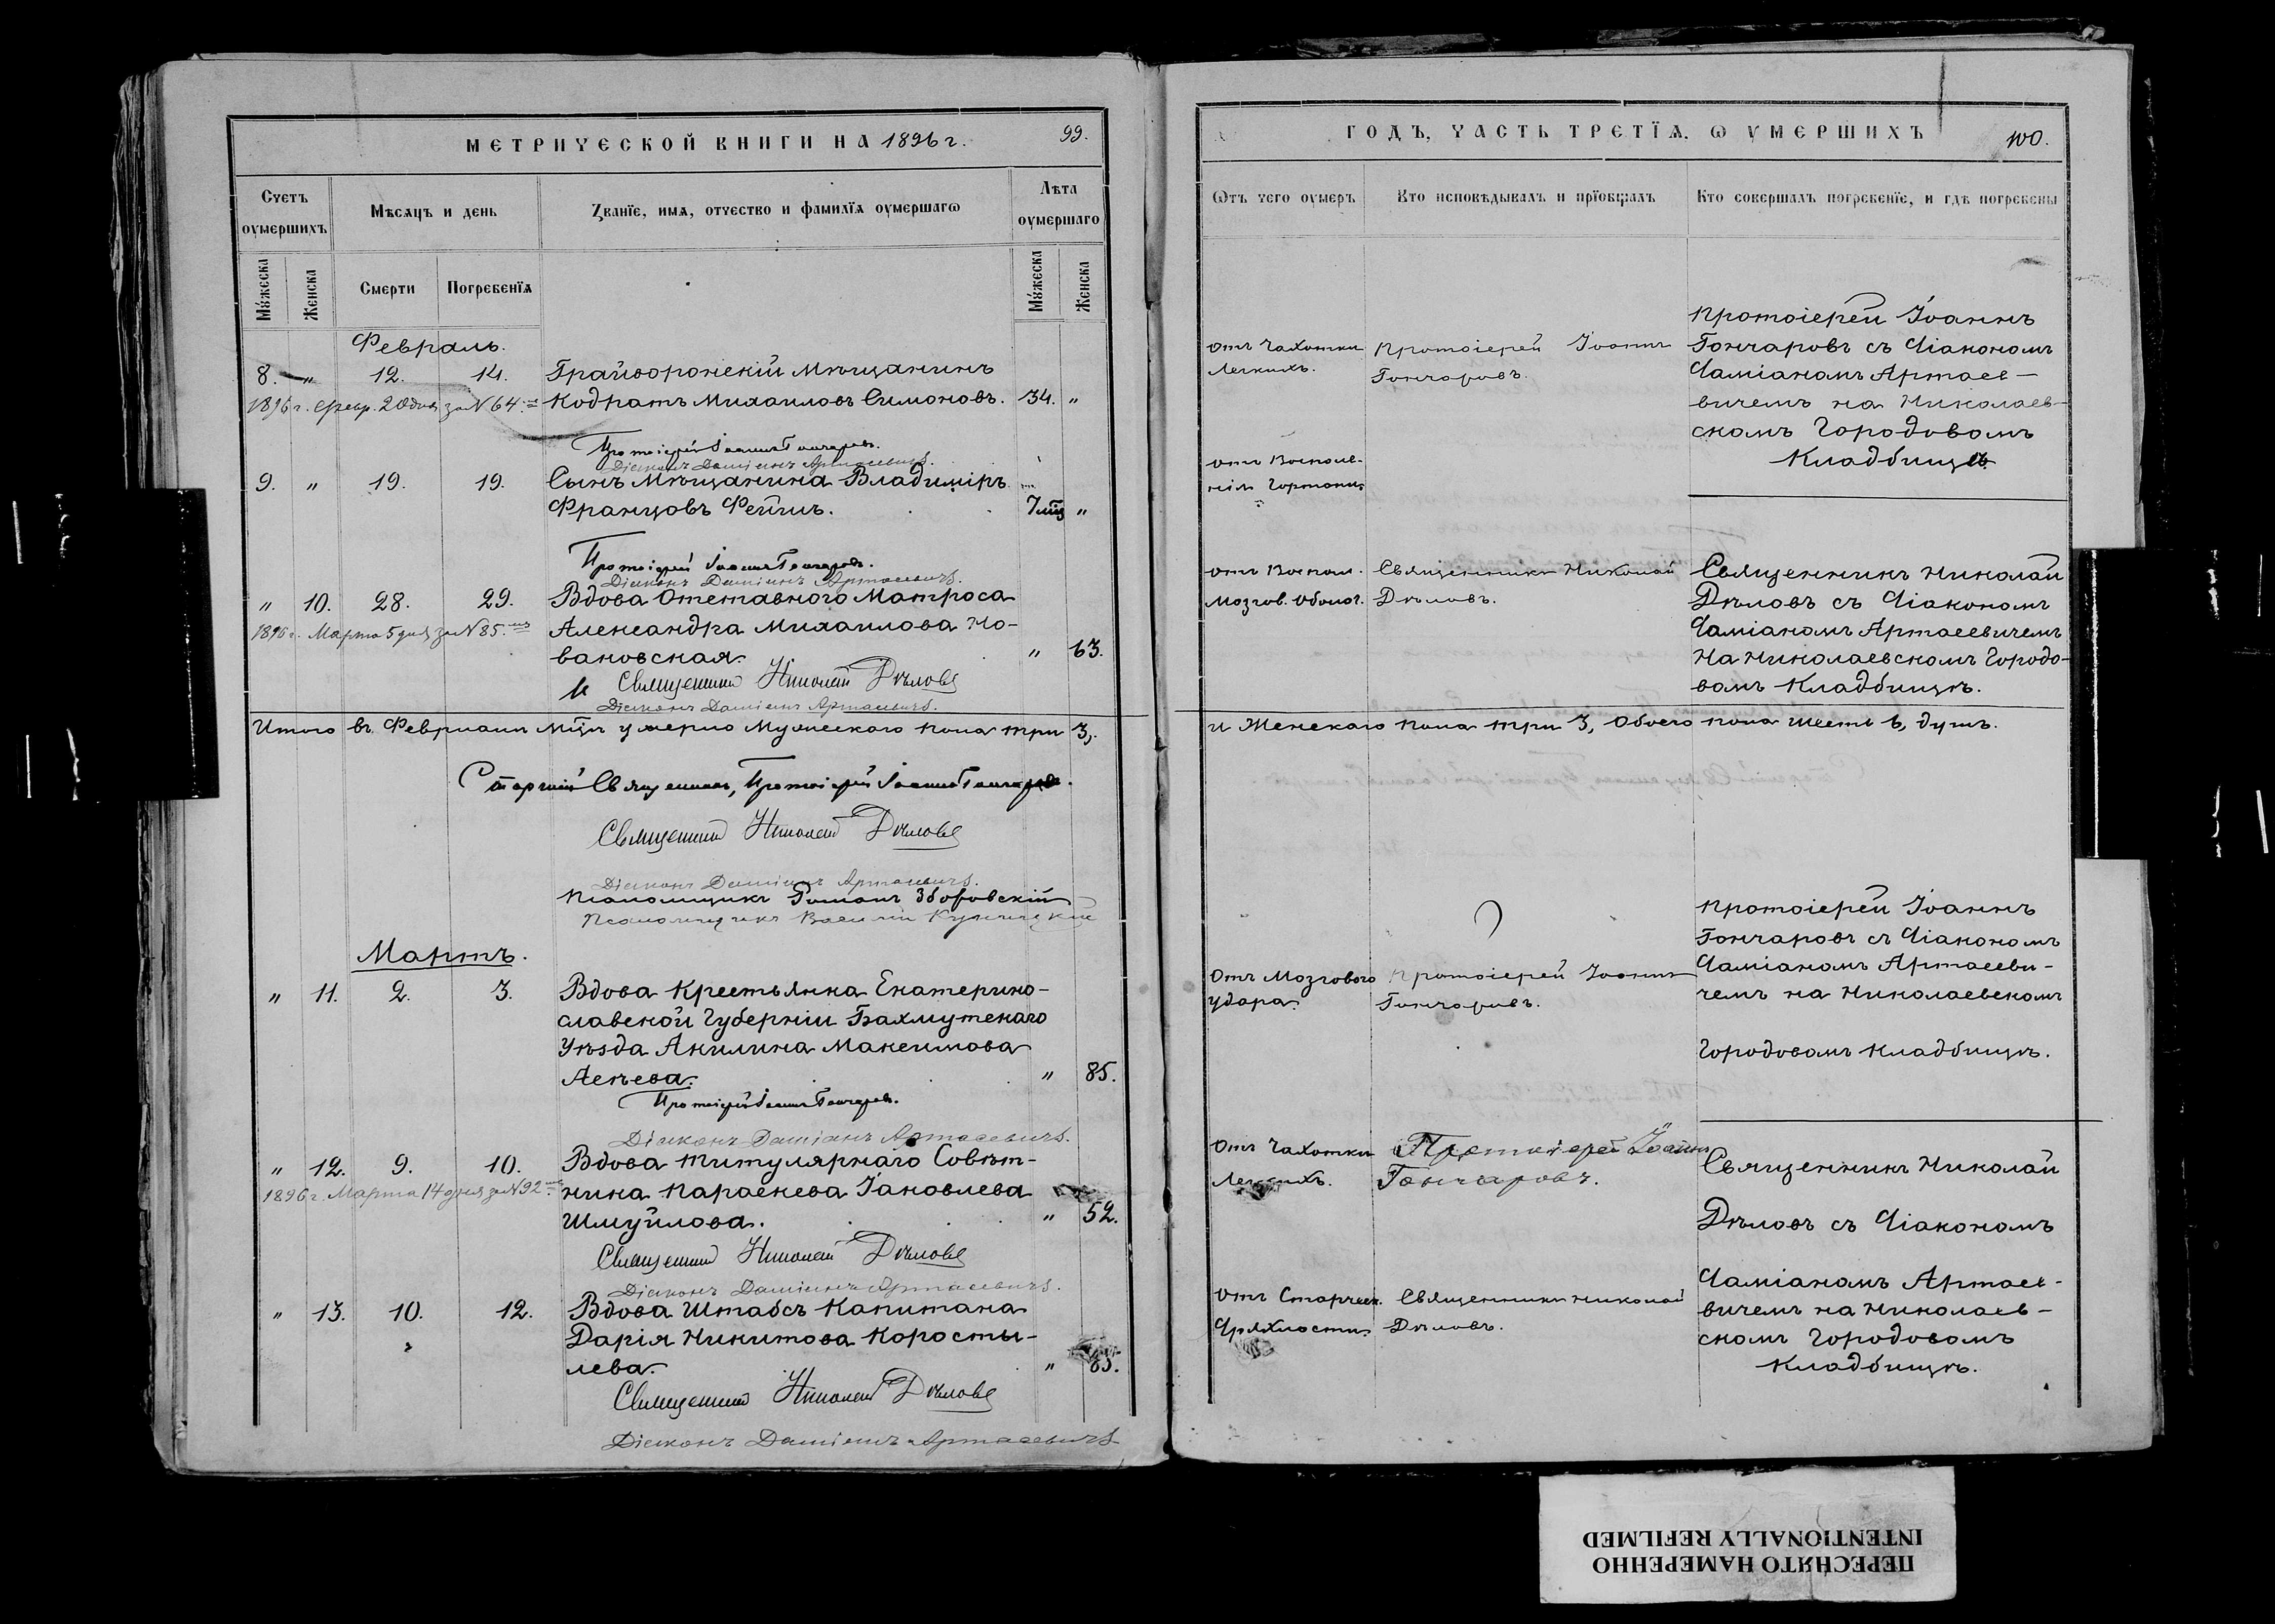 МЕТРИЧЕСКОЙ КНИГИ НА 1896 г.
99.
Счетъ оумершихъ
Мѣсяцъ и день
Званїе, имя, отчество и фамилїя оумершагѡ
Лѣта оумершаго
Мꙋжеска
Женска
Смерти
Погребенїя
Мꙋжеска
Женска
Февраль.
8. " 12. 14. Грайворонскій Мѣщанинъ
1896 г. Февр. 20 дня за N 64. Кодратъ Михаиловъ Симоновъ. 34. "
Протоіерей Іоаннъ Гончаровъ.
Діаконъ Даміанъ Артасевичъ.
9. " 19. 19. Сынъ Мѣщанина Владиміръ
Францовъ Фейгинъ. 7 мц "
Протоіерей Іоаннъ Гончаровъ.
Діаконъ Даміанъ Артасевичъ.
" 10. 28. 29. Вдова Отставного Матроса
1896 г. Марта 5 дня за N 85. Александра Михаилова Но-
вановская. " 63.
Священникъ Николай Дѣловъ
Діаконъ Даміанъ Артасевичъ.
Итого въ Февралѣ мцѣ умерло Мужескаго пола три 3,
Старшій Священникъ, Протоіерей Іоаннъ Гончаровъ.
Священникъ Николай Дѣловъ
Діаконъ Даміанъ Артасевичъ.
Псаломщикъ Романъ Зборовскій
Псаломщикъ Василій
Мартъ.
" 11. 2. 3. Вдова Крестьянка Екатерино-
славской Губерніи Бахмутскаго
Уѣзда Акилина Максимова
" 85.
Протоіерей Іоаннъ Гончаровъ.
Діаконъ Даміанъ Артасевичъ.
" 12. 9. 10. Вдова Титулярнаго Совѣт-
1896 г. Марта 14 дня за N 92. ника Параскева Іаковлева
Шмуйлова. " 52.
Священникъ Николай Дѣловъ
Діаконъ Даміанъ Артасевичъ.
" 13. 10. 12. Вдова Штабсъ Капитана
Дарія Никитова Коросты-
лева. " 85.
Священникъ Николай Дѣловъ
Діаконъ Даміанъ Артасевичъ
ГОДЪ, ЧАСТЬ ТРЕТЇЯ, Ѡ ОУМЕРШИХЪ
100.
Ѿтъ чего оумеръ
Кто исповѣдывалъ и прїобщалъ
Кто совершалъ погребенїе, и гдѣ погребены
отъ Чахотки
Легкихъ.
Протоіерей Іоаннъ
Гончаровъ.
Протоіерей Іоаннъ
Гончаровъ съ Діакономъ
Даміаномъ Артасе-
вичемъ на Николаев-
скомъ Городовомъ
Кладбищѣ
отъ Воспале-
нія Гортани
отъ Воспал.
Мозгов. Оболоч.
Священникъ Николай
Дѣловъ.
Священникъ Николай
Дѣловъ съ Діакономъ
Даміаномъ Артасевичемъ
На Николаевскомъ Городо-
вомъ Кладбищѣ.
и Женскаго пола три 3, Обоего пола шесть 6, душъ.
Отъ Мозгового
удара.
Протоіерей Іоаннъ
Гончаровъ.
Протоіерей Іоаннъ
Гончаровъ съ Діакономъ
Даміаномъ Артасеви-
чемъ на Николаевскомъ
Городовомъ Кладбищѣ.
Отъ Чахотки
Легкихъ.
Протоіерей Іоаннъ
Гончаровъ.
Священникъ Николай
Дѣловъ съ Діакономъ
Даміаномъ Артасе-
вичемъ на Николаев-
скомъ Городовомъ
Кладбищѣ.
Отъ Старческ.
Дряхлости.
Священникъ Николай
Дѣловъ.
ПЕРЕСНЯТО НАМЕРЕННО
INTENTIONALLY REFILMED